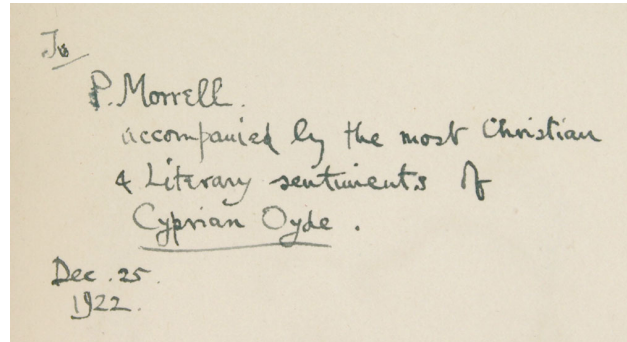 To
P. Morrell.
accompanied by the most Christian
& Literary sentiments of
Cyprian Oyde.
Dec. 25.
1922.